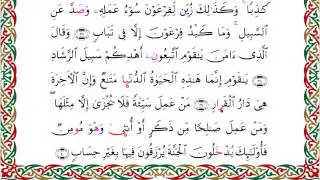 كَٰذِبًا ۚ وَكَذَٰلِكَ زُيِّنَ لِفِرْعَوْنَ سُوٓءُ عَمَلِهِۦ وَصَدَّ عَنِ
ٱلسَّبِيلِ ۚ وَمَا كَيْدُ فِرْعَوْنَ إِلَّا فِى تَبَابٍ وَقَالَ
ٱلَّذِىٓ ءَامَنَ يَٰقَوْمِ ٱتَّبِعُونِۦ أَهْدِكُمْ سَبِيلَ ٱلرَّشَادِ
يَٰقَوْمِ إِنَّمَا هَٰذِهِ ٱلْحَيَوٰةُ ٱلدُّنْيَا مَتَٰعٌ وَإِنَّ ٱلْءَاخِرَةَ
هِىَ دَارُ ٱلْقَرَارِ مَنْ عَمِلَ سَيِّئَةً فَلَا يُجْزَىٰٓ إِلَّا مِثْلَهَا ۖ
وَمَنْ عَمِلَ صَٰلِحًا مِّن ذَكَرٍ أَوْ أُنثَىٰ وَهْوَ مُومِنٌ
فَأُو۟لَٰٓئِكَ يُدْخَلُونَ ٱلْجَنَّةَ يُرْزَقُونَ فِيهَا بِغَيْرِ حِسَابٍ